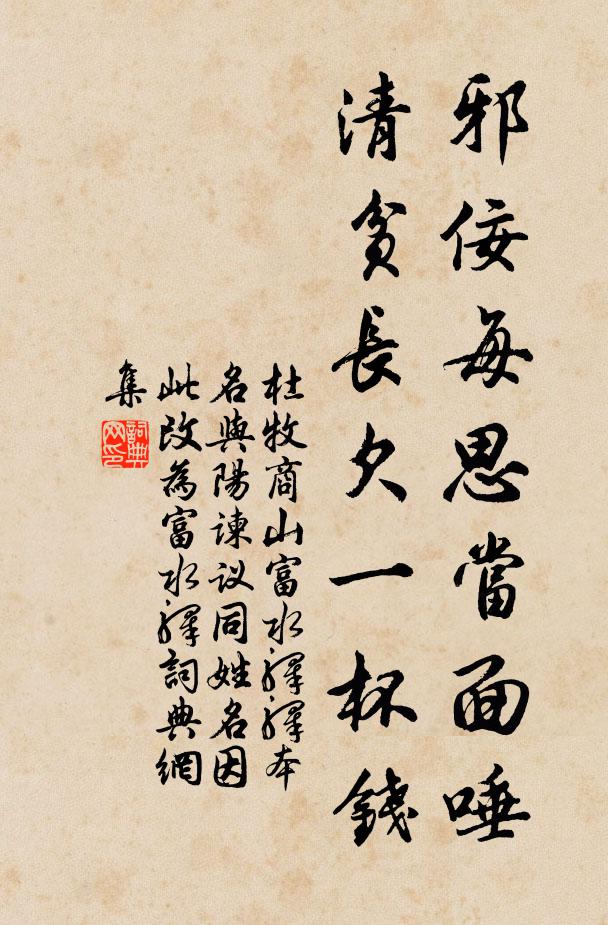 邪佞每思當面唾
清貧長欠一杯錢
杜牧商山富水驛驛本
名與陽諫议同姓名因
此改為富水驛詞典網
集
詞典
网印